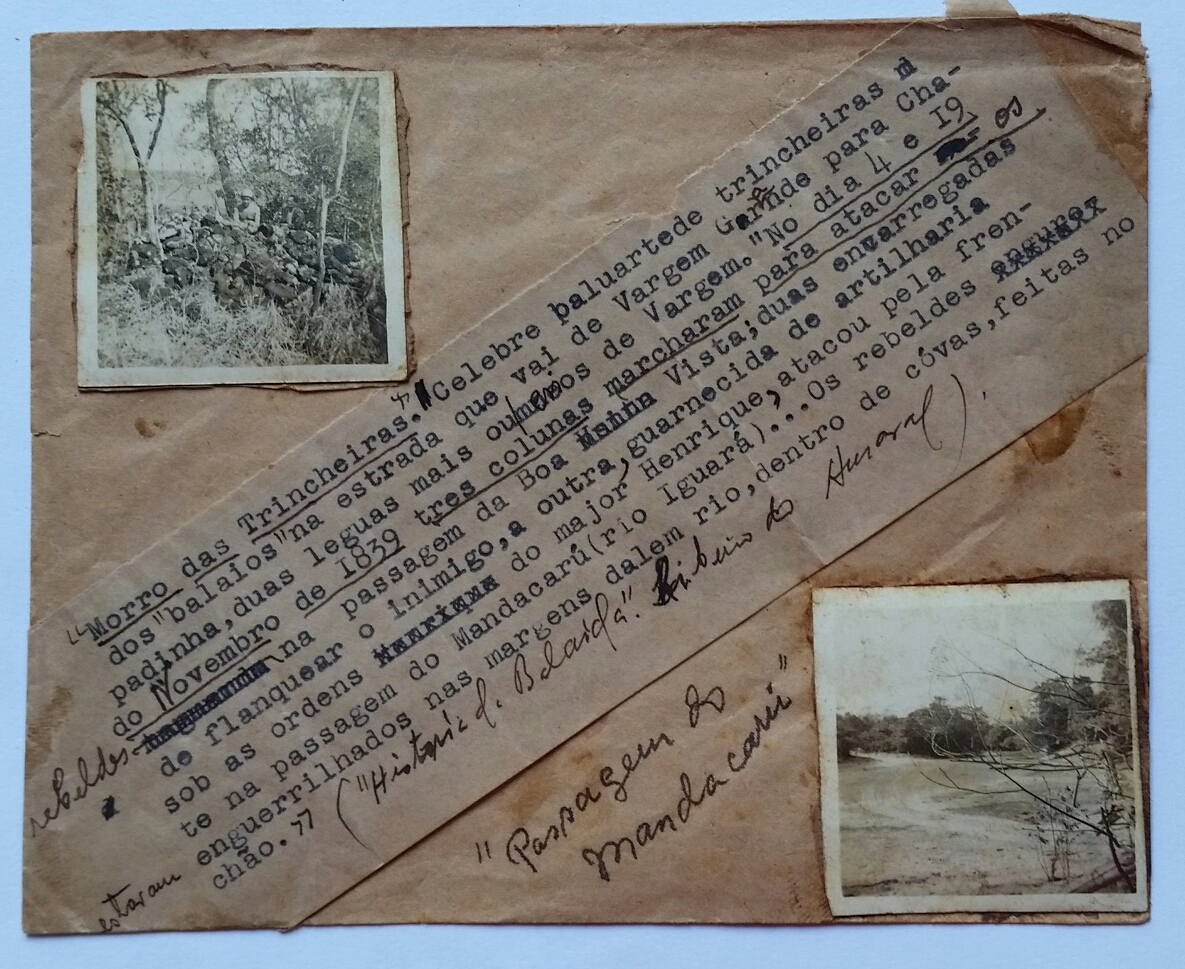 "Morro das Trincheiras." Celebre baluartede trincheiras d
dos "balaios" na estrada que vai de Vargem Garnde para Cha-
padinha, duas leguas mais ou menos de Vargem. "No dia 4 e I9
do Novembro de I839 tres colunas marcharam para atacar os
rebeldes na passagem da Boa Vista; duas encarregadas
de flanquear o inimigo, a outra, guarnecida de artilharia
sob as ordens do major Henrique, atacou pela fren-
te na passagem do Mandacarú (rio Iguará)...Os rebeldes
estavam enguerrilhados nas margens dalem rio, dentro de cóvas, feitas no
chão." ("Historia d. Balaida". Ribeiro do Amaral).
"Passagem do
Mandacarú"